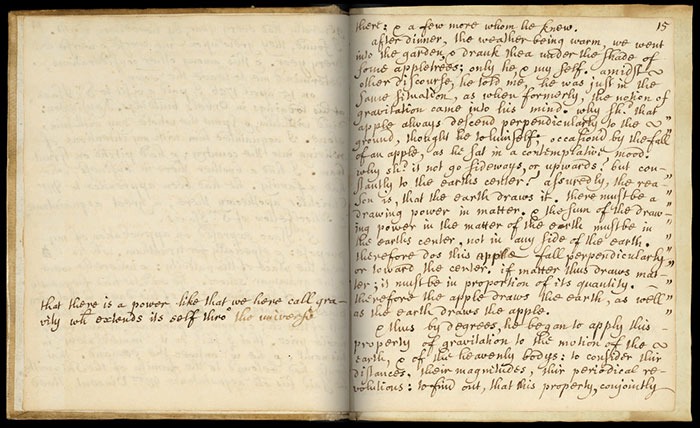 that there is a power like that we here call gra-
vity wh extends its self thro' the universe
15
there: & a few more whom he knew.
after dinner, the weather being warm, we went
into the garden, & drank thea under the shade of
some appletrees; only he, & my self. amidst
other discourse, he told me, he was just in the
same situation, as when formerly, the notion of
gravitation came into his mind. "why sh.d that
apple always descend perpendicularly to the
ground, thought he to himself; occasion'd by the fall
of an apple, as he sat in a contemplative mood.
why sh.d it not go sideways, or upwards? but con-
stantly to the earths center? assuredly, the rea-
son is, that the earth draws it. there must be a
drawing power in matter. & the sum of the draw-
ing power in the matter of the earth must be in
the earths center, not in any side of the earth.
therefore dos this apple fall perpendicularly
or toward the center. if matter thus draws mat-
ter; it must be in proportion of its quantity.
therefore the apple draws the earth, as well
as the earth draws the apple.
& thus by degrees, he began to apply this
property of gravitation to the motion of the
earth, & of the heavenly bodys: to consider thir
distances, their magnitudes, thir periodical re-
volutions: to find out, that this property, conjointly